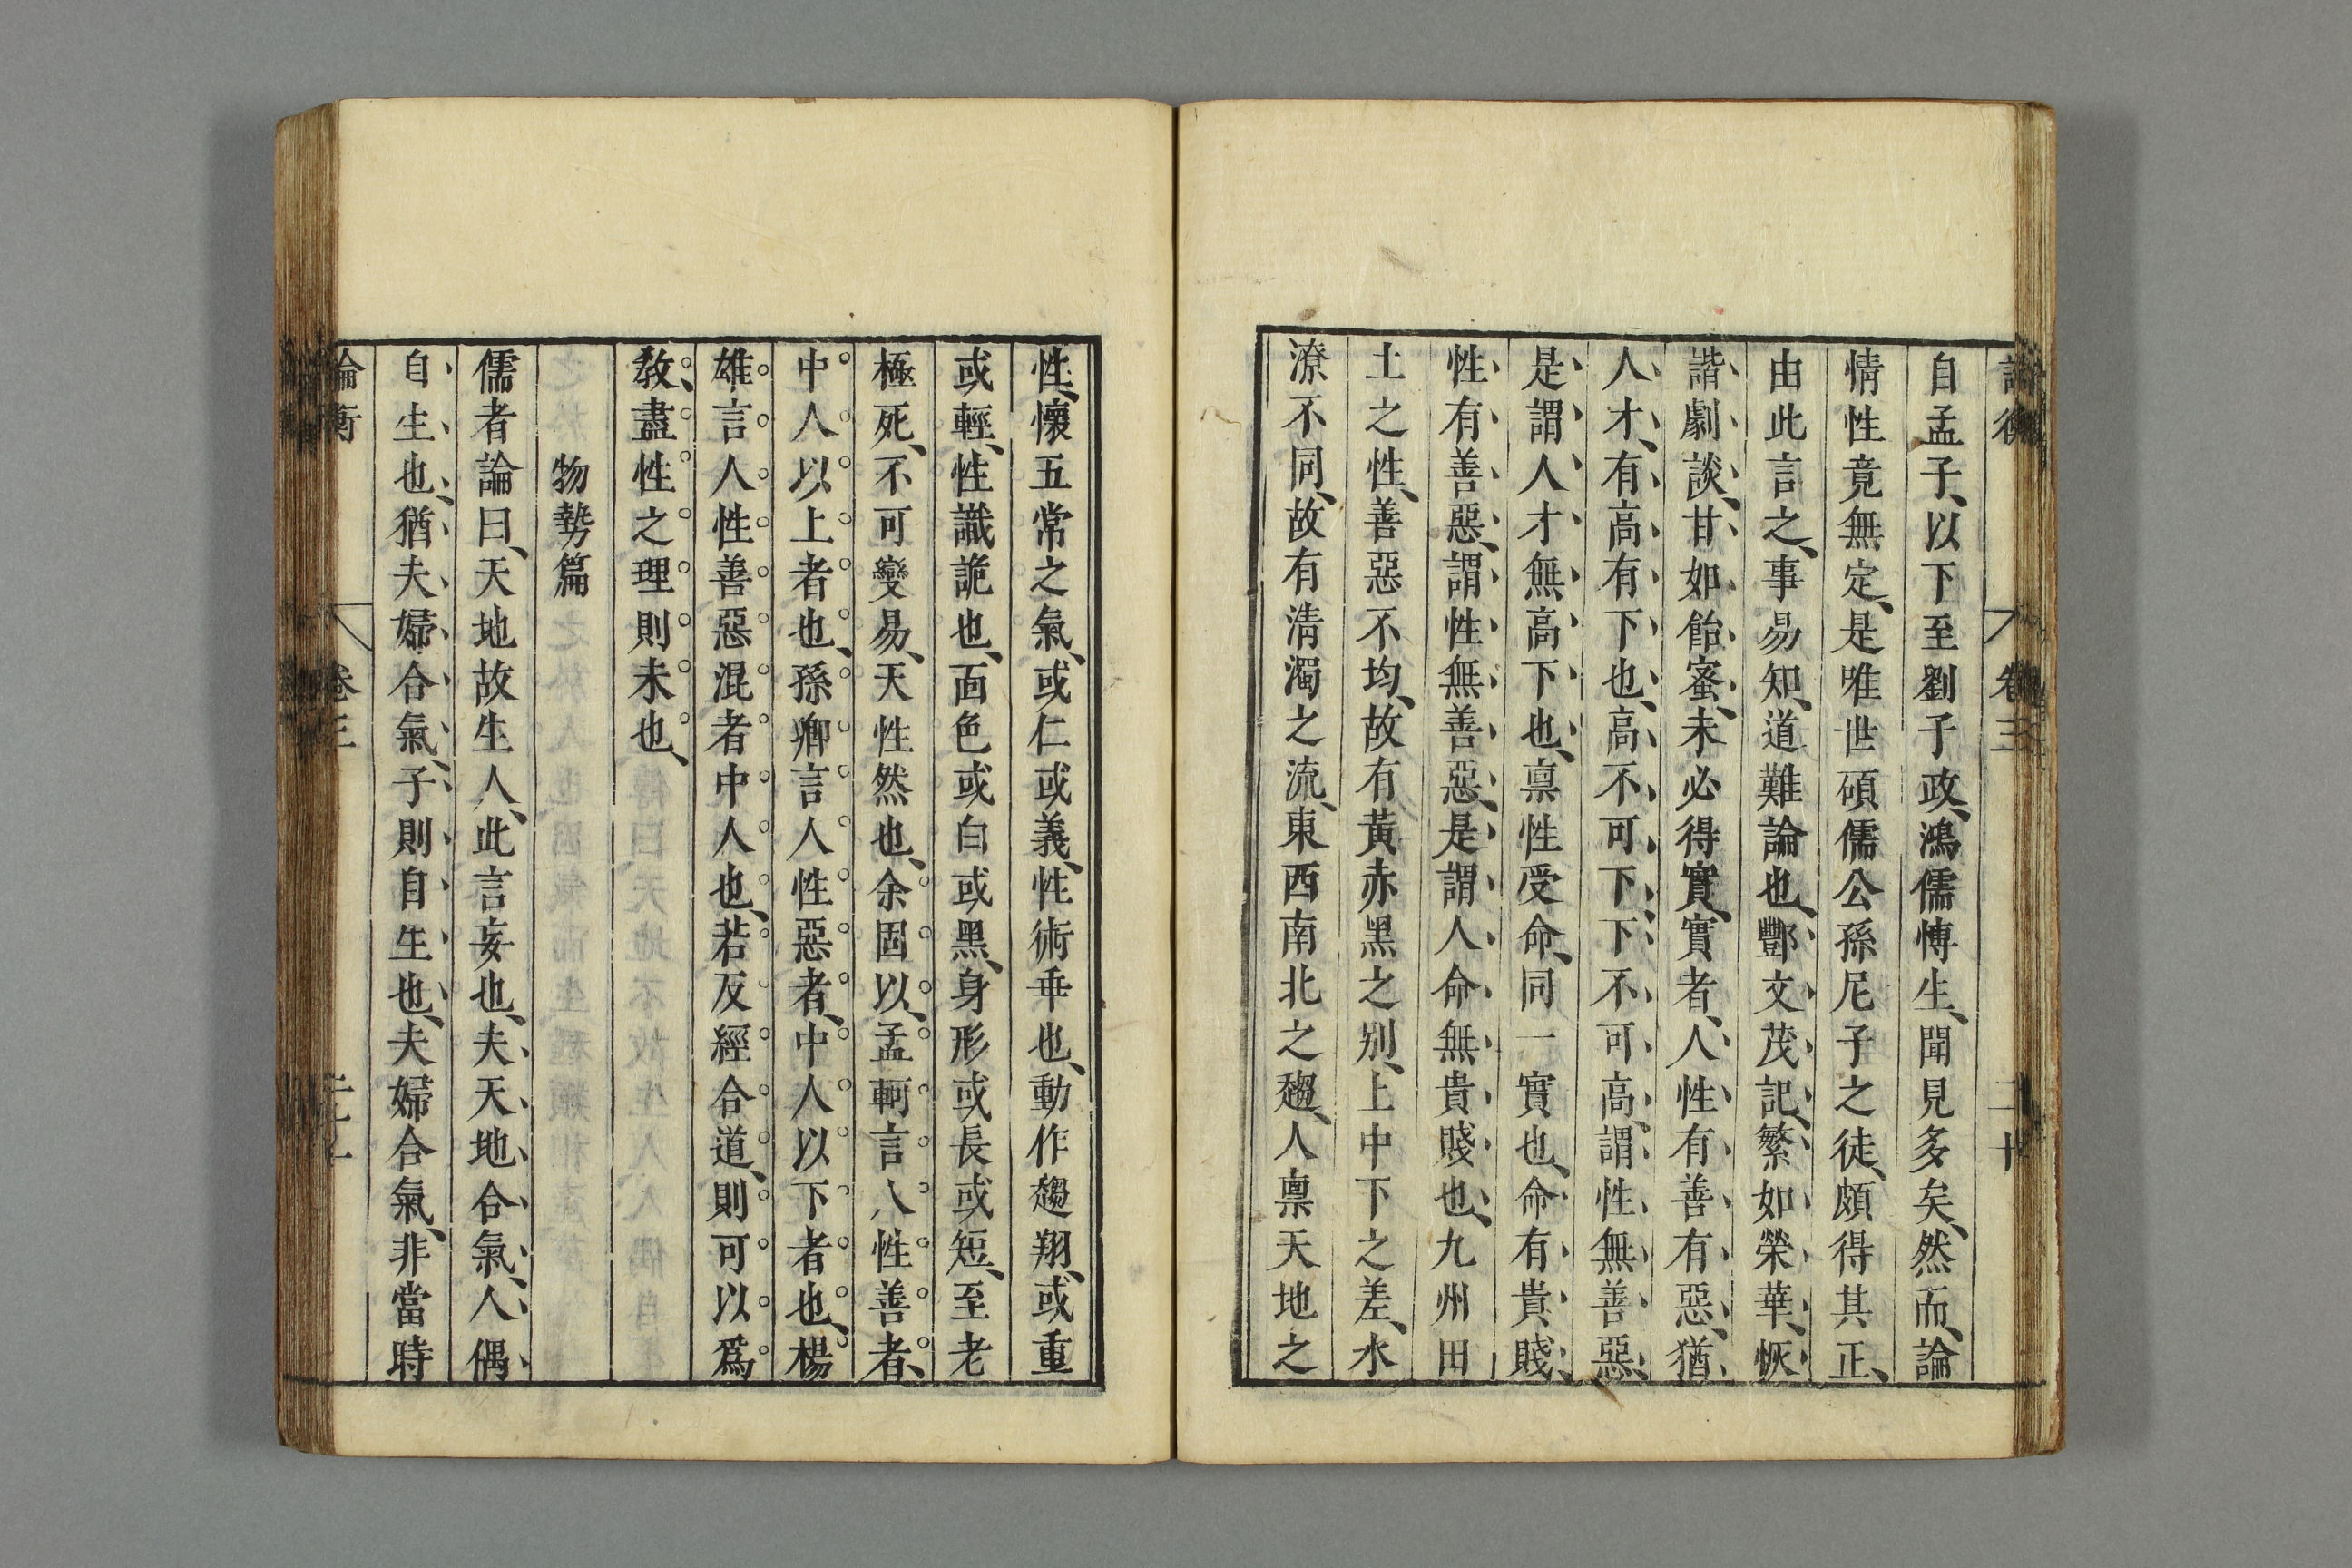 論衡 卷三 二十
自孟子、以下至劉子政、鴻儒愽生、聞見多矣、然而、論
情性竟無定、是唯世碩儒公孫尼子之徒、頗得其正、
由此言之、事易知、道難論也、酆文茂記、繁如榮華、恢
諧劇談、甘如飴蜜、未必得實、實者、人性有善有惡、猶
人才、有高有下也、高不可下、下不可高、謂性無善惡、
是謂人才無高下也、禀性受命、同一實也、命有貴賤、
性有善惡、謂性無善惡、是謂人命無貴賤也、九州田
土之性、善惡不均、故有黃赤黑之別、上中下之差、水
潦不同、故有清濁之流、東西南北之趨、人禀天地之
性、懷五常之氣、或仁或義、性術乖也、動作趨翔、或重
或輕、性識詭也、面色或白或黑、身形或長或短、至老
極死、不可變易、天性然也、余固以、孟軻言人性善者、
中人以上者也、孫卿言人性惡者、中人以下者也、楊
雄言人性善惡混者中人也、若反經合道、則可以爲
教、盡性之理則未也、
物勢篇
儒者論曰、天地故生人、此言妄也、夫天地合氣、人偶
自生也、猶夫婦合氣、子則自生也、夫婦合氣、非當時
論衡 卷三